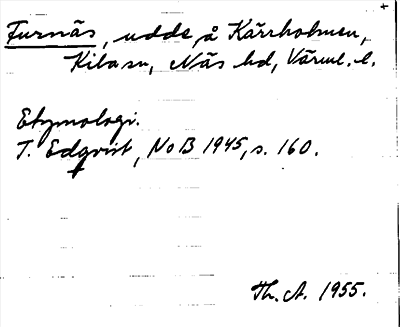 Furnäs, udde å Kärrholmen,
Kila sn, Näs hd, Värml. l.
Etymologi.
T. Edqvist, NoB 1945, s. 160.
Th. A. 1955.